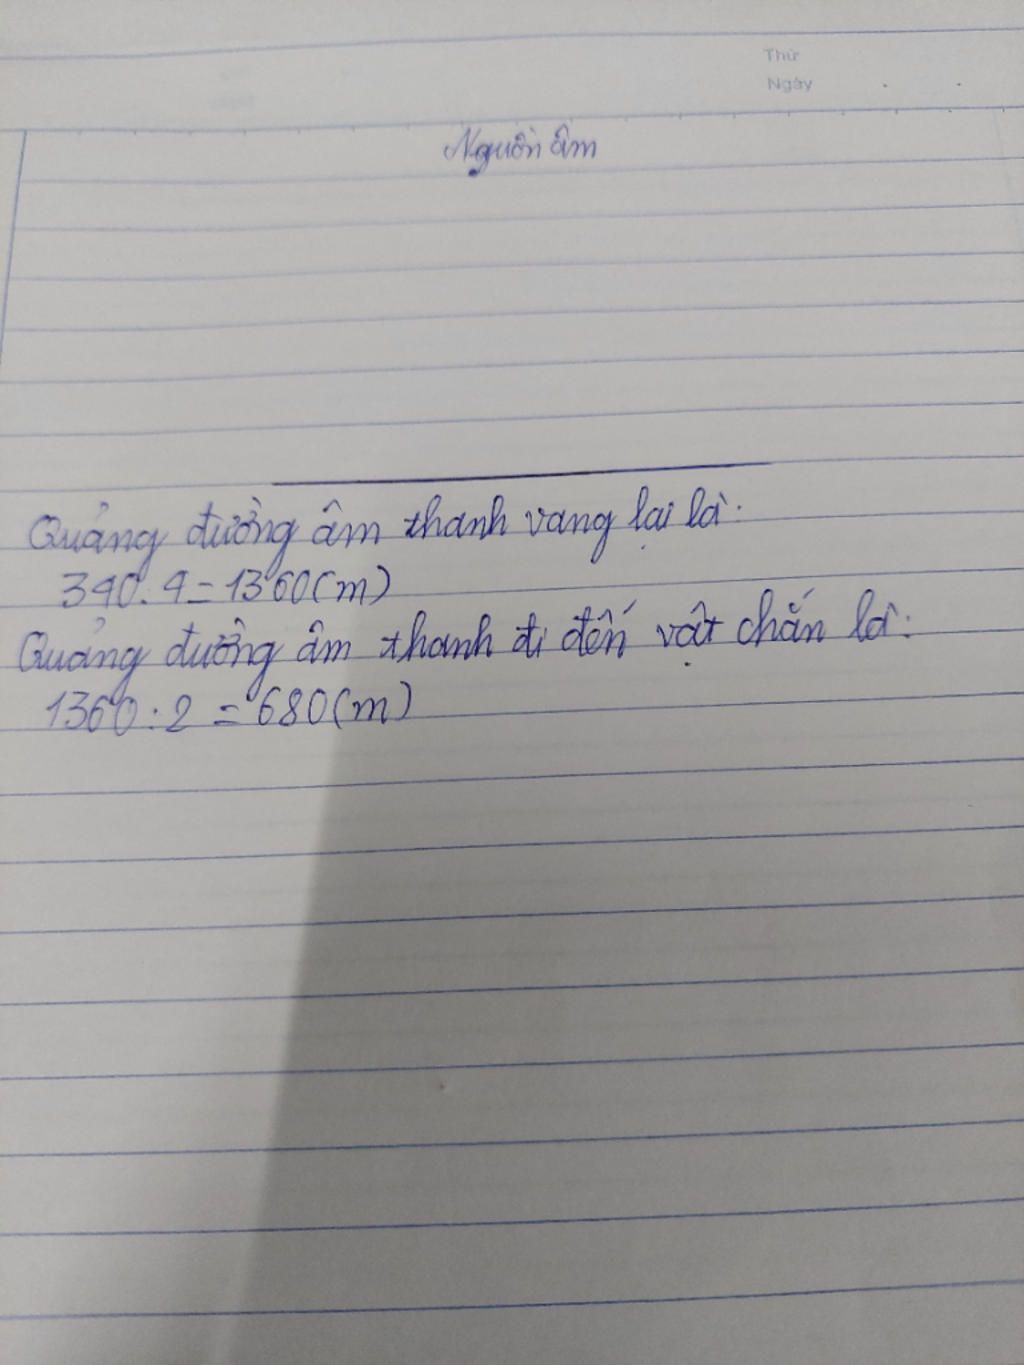 Thứ
Ngày
Nguồn âm
Quảng đường âm thanh vang lại là:
340.4=1360(m)
Quảng đường âm thanh đi đến vật chắn là:
1360:2=680(m)